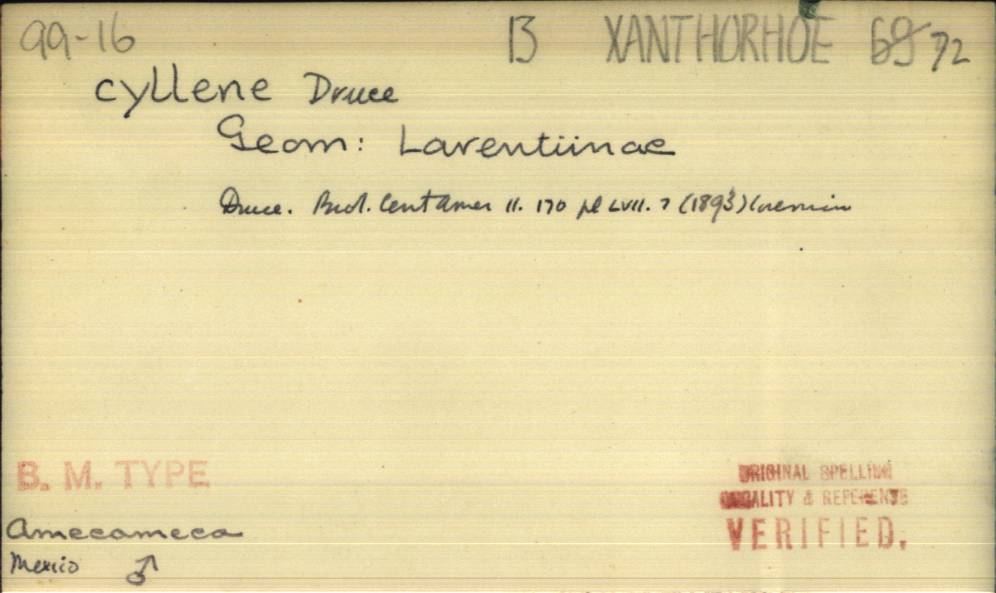 99-16 13 XANTHORHOE 69 72
cyllene Druce
Geom: Larentiinae
Druce. Biol. Cent Amer II. 170 pl LVII. 7 (1893) Coremia
B. M. TYPE
Amecameca
Mexico ♂
ORIGINAL SPELLING
LOCALITY & REFERENCE
VERIFIED.